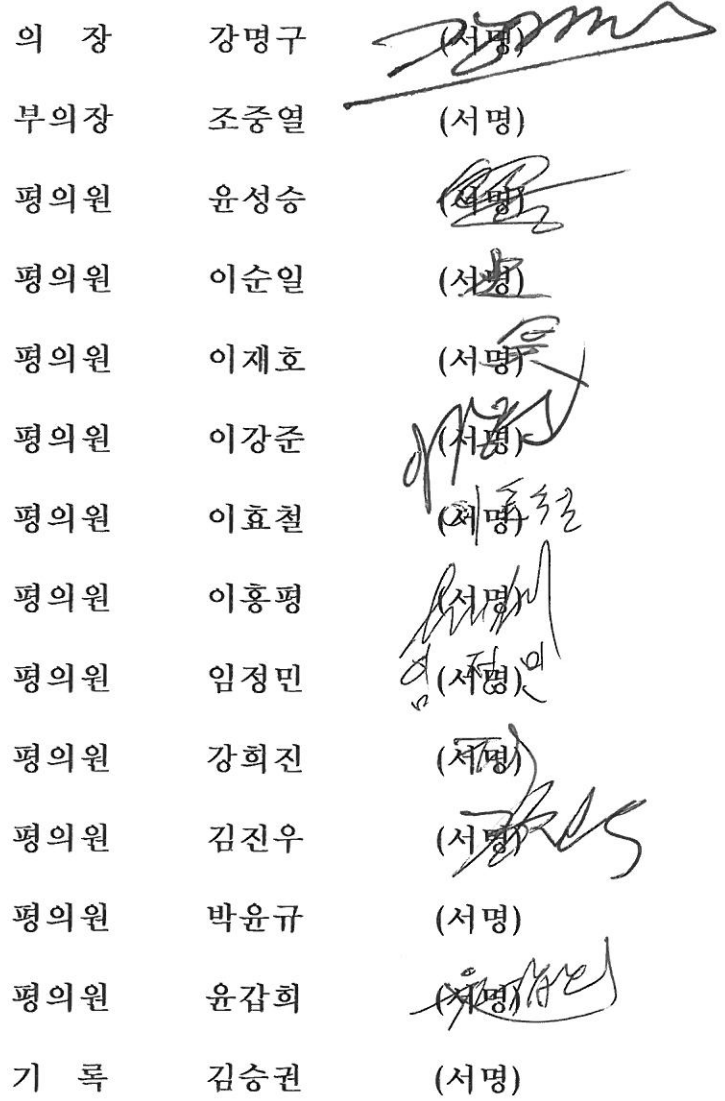 의 장 강명구 (서명)
부의장 조중열 (서명)
평의원 윤성승 (서명)
평의원 이순일 (서명)
평의원 이재호 (서명)
평의원 이강준 (서명)
평의원 이효철 (서명)
평의원 이홍평 (서명)
평의원 임정민 (서명)
평의원 강희진 (서명)
평의원 김진우 (서명)
평의원 박윤규 (서명)
평의원 윤갑희 (서명)
기 록 김승권 (서명)